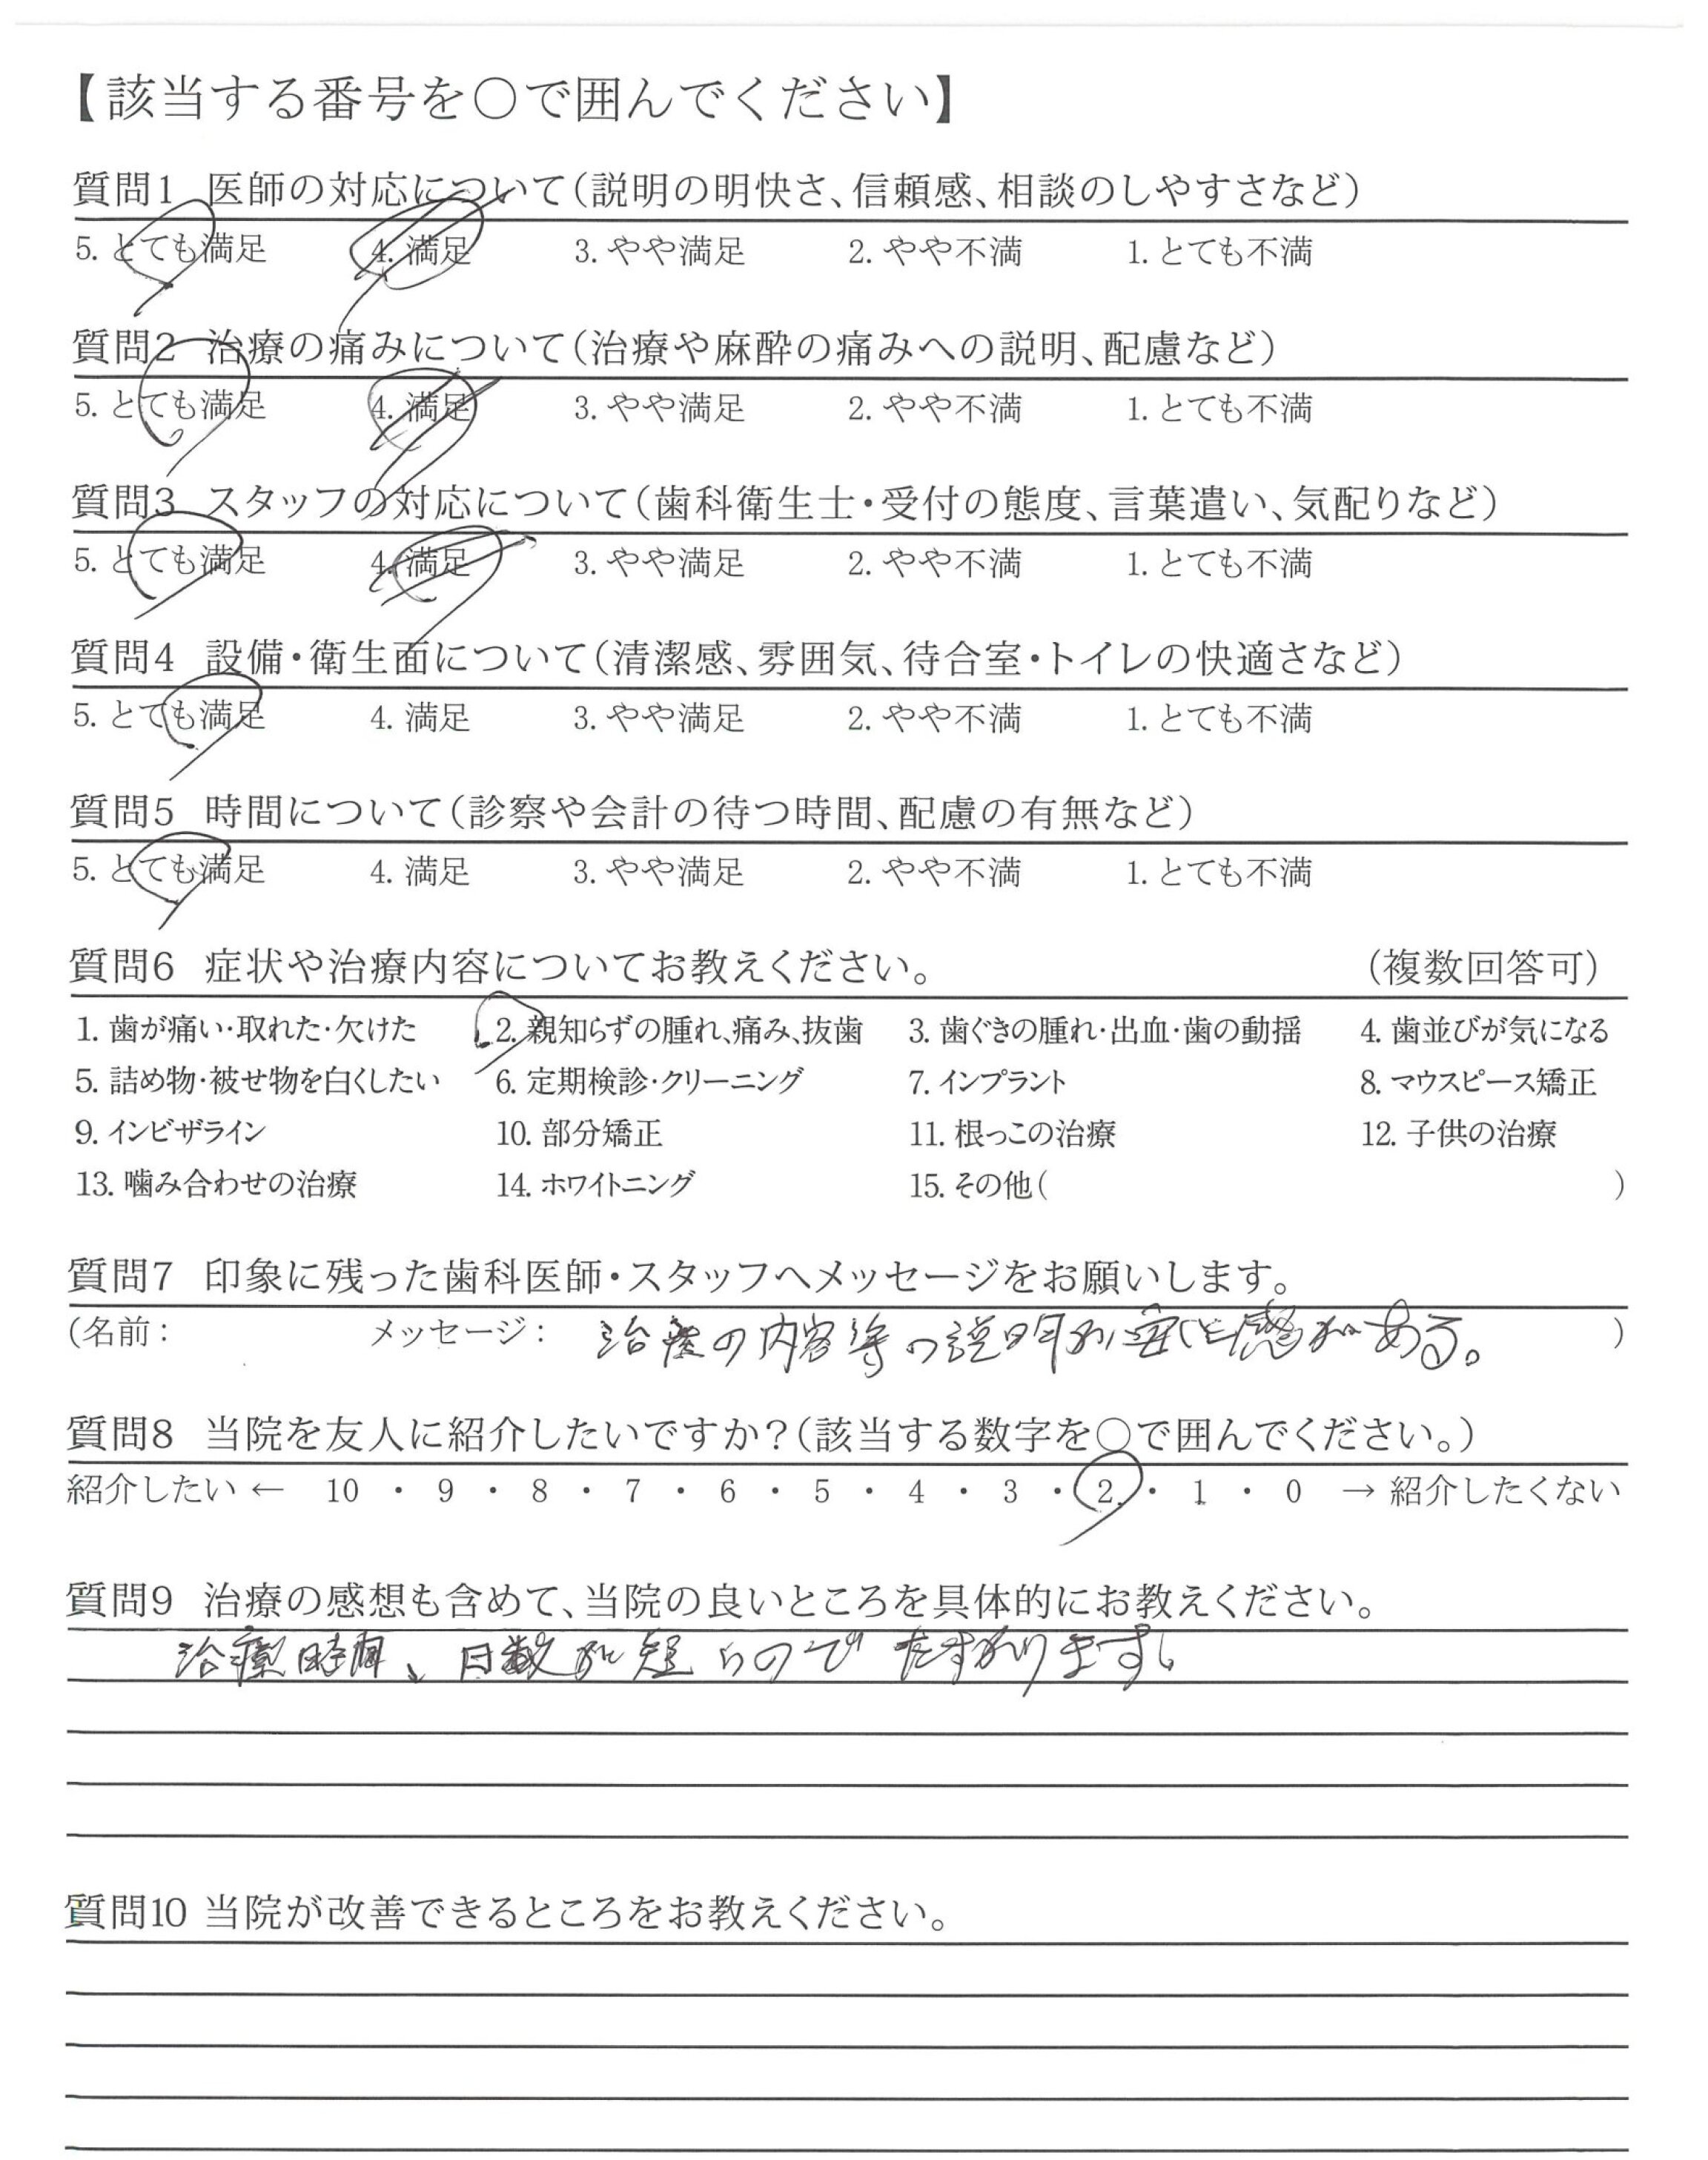 【該当する番号を○で囲んでください】
質問1 医師の対応について（説明の明快さ、信頼感、相談のしやすさなど）
5. とても満足 4. 満足 3. やや満足 2. やや不満 1. とても不満
質問2 治療の痛みについて（治療や麻酔の痛みへの説明、配慮など）
5. とても満足 4. 満足 3. やや満足 2. やや不満 1. とても不満
質問3 スタッフの対応について（歯科衛生士・受付の態度、言葉遣い、気配りなど）
5. とても満足 4. 満足 3. やや満足 2. やや不満 1. とても不満
質問4 設備・衛生面について（清潔感、雰囲気、待合室・トイレの快適さなど）
5. とても満足 4. 満足 3. やや満足 2. やや不満 1. とても不満
質問5 時間について（診察や会計の待つ時間、配慮の有無など）
5. とても満足 4. 満足 3. やや満足 2. やや不満 1. とても不満
質問6 症状や治療内容についてお教えください。 （複数回答可）
1. 歯が痛い・取れた・欠けた 2. 親知らずの腫れ、痛み、抜歯 3. 歯ぐきの腫れ・出血・歯の動揺 4. 歯並びが気になる
5. 詰め物・被せ物を白くしたい 6. 定期検診・クリーニング 7. インプラント 8. マウスピース矯正
9. インビザライン 10. 部分矯正 11. 根っこの治療 12. 子供の治療
13. 噛み合わせの治療 14. ホワイトニング 15. その他（ ）
質問7 印象に残った歯科医師・スタッフへメッセージをお願いします。
（名前： メッセージ： 治療の内容等の説明が安心感がある。 ）
質問8 当院を友人に紹介したいですか？（該当する数字を○で囲んでください。）
紹介したい ← 10 ・ 9 ・ 8 ・ 7 ・ 6 ・ 5 ・ 4 ・ 3 ・ 2 ・ 1 ・ 0 → 紹介したくない
質問9 治療の感想も含めて、当院の良いところを具体的にお教えください。
治療時間、日数が短いのでたすかります。
質問10 当院が改善できるところをお教えください。